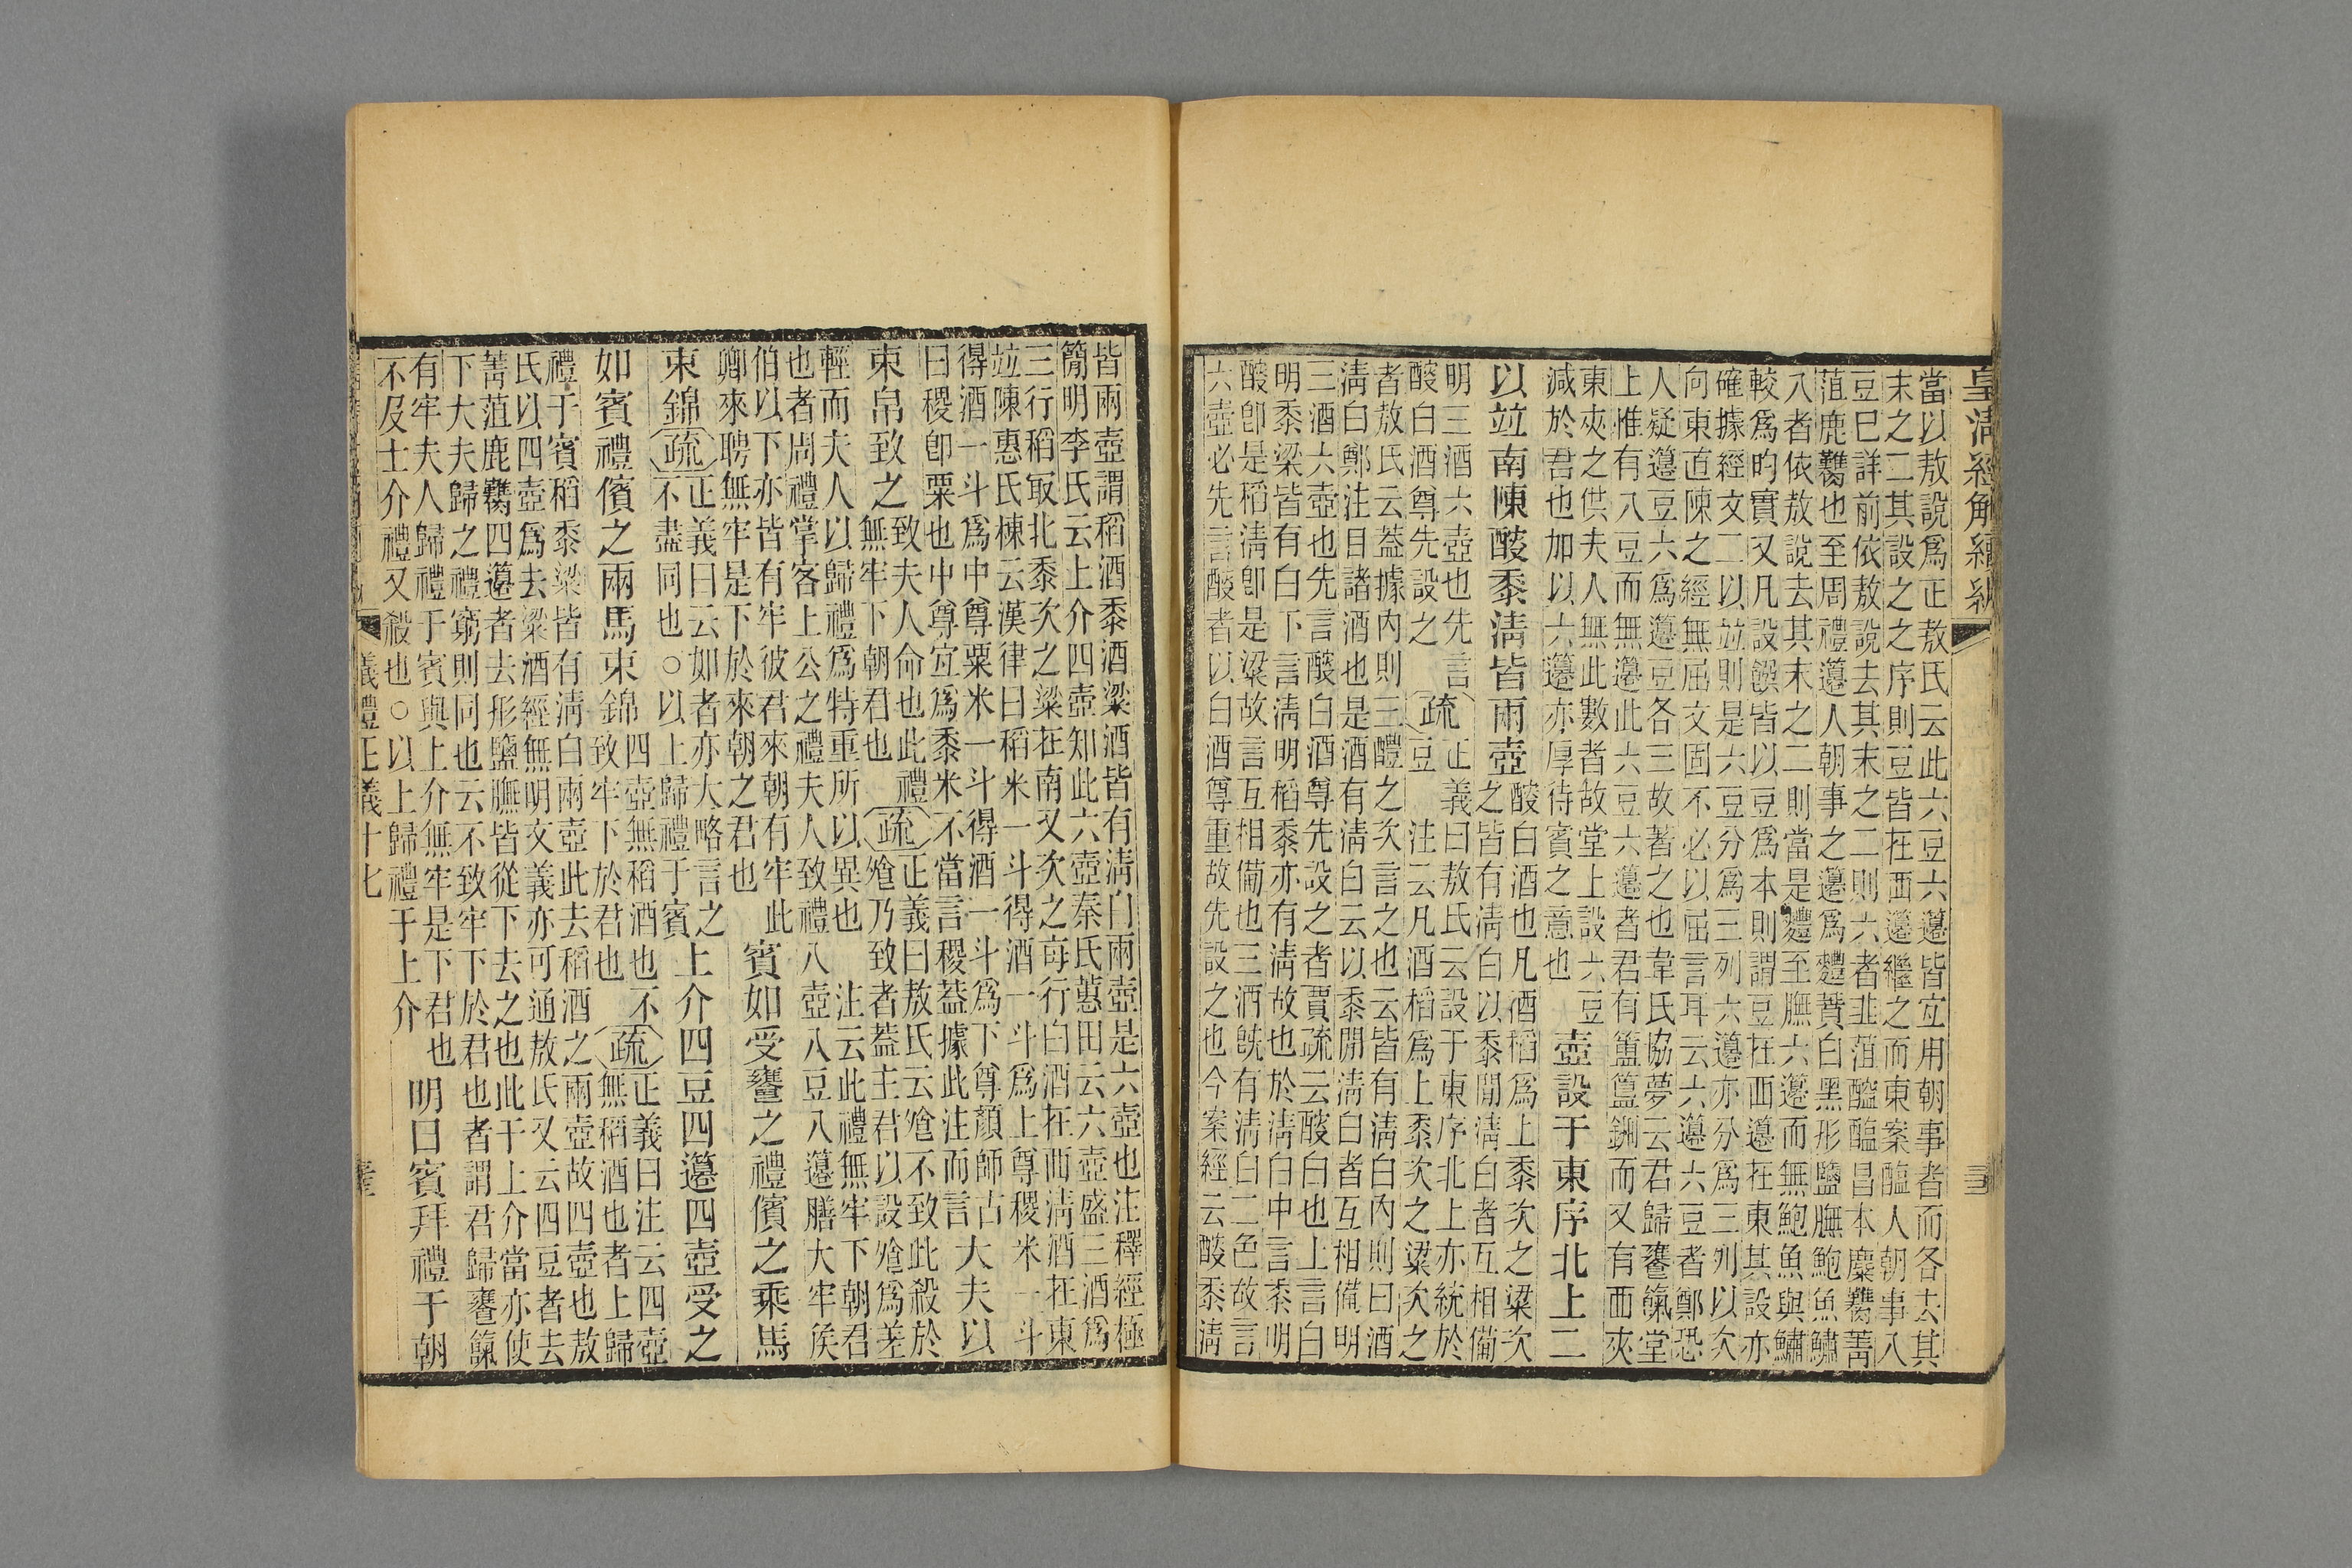 皇淸經解續編
當以敖說爲正敖氏云此六豆六籩皆宐用朝事者而各去其
末之二其設之之序則豆皆在西籩繼之而東案醢人朝事八
豆巳詳前依敖說去其末之二則六者韭菹醓醢昌本麋臡菁
菹鹿臡也至周禮籩人朝事之籩爲麷蕡白黑形鹽膴鮑魚鱐
八者依敖說去其末之二則當是麷至膴六籩而無鮑魚與鱐
較爲昀實又凡設饌皆以豆爲本則謂豆在西籩在東其設亦
確據經文二以竝則是六豆分爲三列六籩亦分爲三列以次
向東直陳之經無屈文固不必以屈言耳云六籩六豆者鄭恐
人疑籩豆六爲籩豆各三故著之也韋氏協夢云君歸饔餼堂
上惟有八豆而無籩此六豆六籩者君有簠簋鉶而又有西夾
東夾之供夫人無此數者故堂上設六豆
減於君也加以六籩亦厚待賓之意也
壺設于東序北上二
以竝南陳醙黍淸皆兩壺
醙白酒也凡酒稻爲上黍次之粱次
之皆有淸白以黍閒淸白者互相備
明三酒六壺也先言
醙白酒尊先設之
疏
正義曰敖氏云設于東序北上亦統於
豆 注云凡酒稻爲上黍次之粱次之
者敖氏云蓋據內則三醴之次言之也云皆有淸白內則曰酒
淸白鄭注目諸酒也是酒有淸白云以黍閒淸白者互相備明
三酒六壺也先言醙白酒尊先設之者賈疏云醙白也上言白
明黍粱皆有白下言淸明稻黍亦有淸故也於淸白中言黍明
醙卽是稻淸卽是粱故言互相備也三酒旣有淸白二色故言
六壺必先言醙者以白酒尊重故先設之也今案經云醙黍淸
皆兩壺謂稻酒黍酒粱酒皆有淸白兩壺是六壺也注釋經極
簡明李氏云上介四壺知此六壺秦氏蕙田云六壺盛三酒爲
三行稻取北黍次之粱在南又次之每行白酒在西淸酒在東
竝陳惠氏棟云漢律曰稻米一斗得酒一斗爲上尊稷米一斗
得酒一斗爲中尊粟米一斗得酒一斗爲下尊顏師古
曰稷卽粟也中尊宐爲黍米不當言稷蓋據此注而言
大夫以
束帛致之
致夫人命也此禮
無牢下朝君也
疏
正義曰敖氏云飧不致此殺於
飧乃致者蓋主君以設飧爲差
輕而夫人以歸禮爲特重所以異也 注云此禮無牢下朝君
也者周禮掌客上公之禮夫人致禮八壺八豆八籩膳大牢侯
伯以下亦皆有牢彼君來朝有牢此
卿來聘無牢是下於來朝之君也
賓如受饔之禮儐之乘馬
束錦
疏
正義曰云如者亦大略言之
不盡同也○以上歸禮于賓
上介四豆四籩四壺受之
如賓禮儐之兩馬束錦
四壺無稻酒也不
致牢下於君也
疏
正義曰注云四壺
無稻酒也者上歸
禮于賓稻黍粱皆有淸白兩壺此去稻酒之兩壺故四壺也敖
氏以四壺爲去粱酒經無明文義亦可通敖氏又云四豆者去
菁菹鹿臡四籩者去形鹽膴皆從下去之也此于上介當亦使
下大夫歸之禮窮則同也云不致牢下於君也者謂君歸饔餼
有牢夫人歸禮于賓與上介無牢是下君也
不及士介禮又殺也○以上歸禮于上介
明日賓拜禮于朝
儀禮正義十七